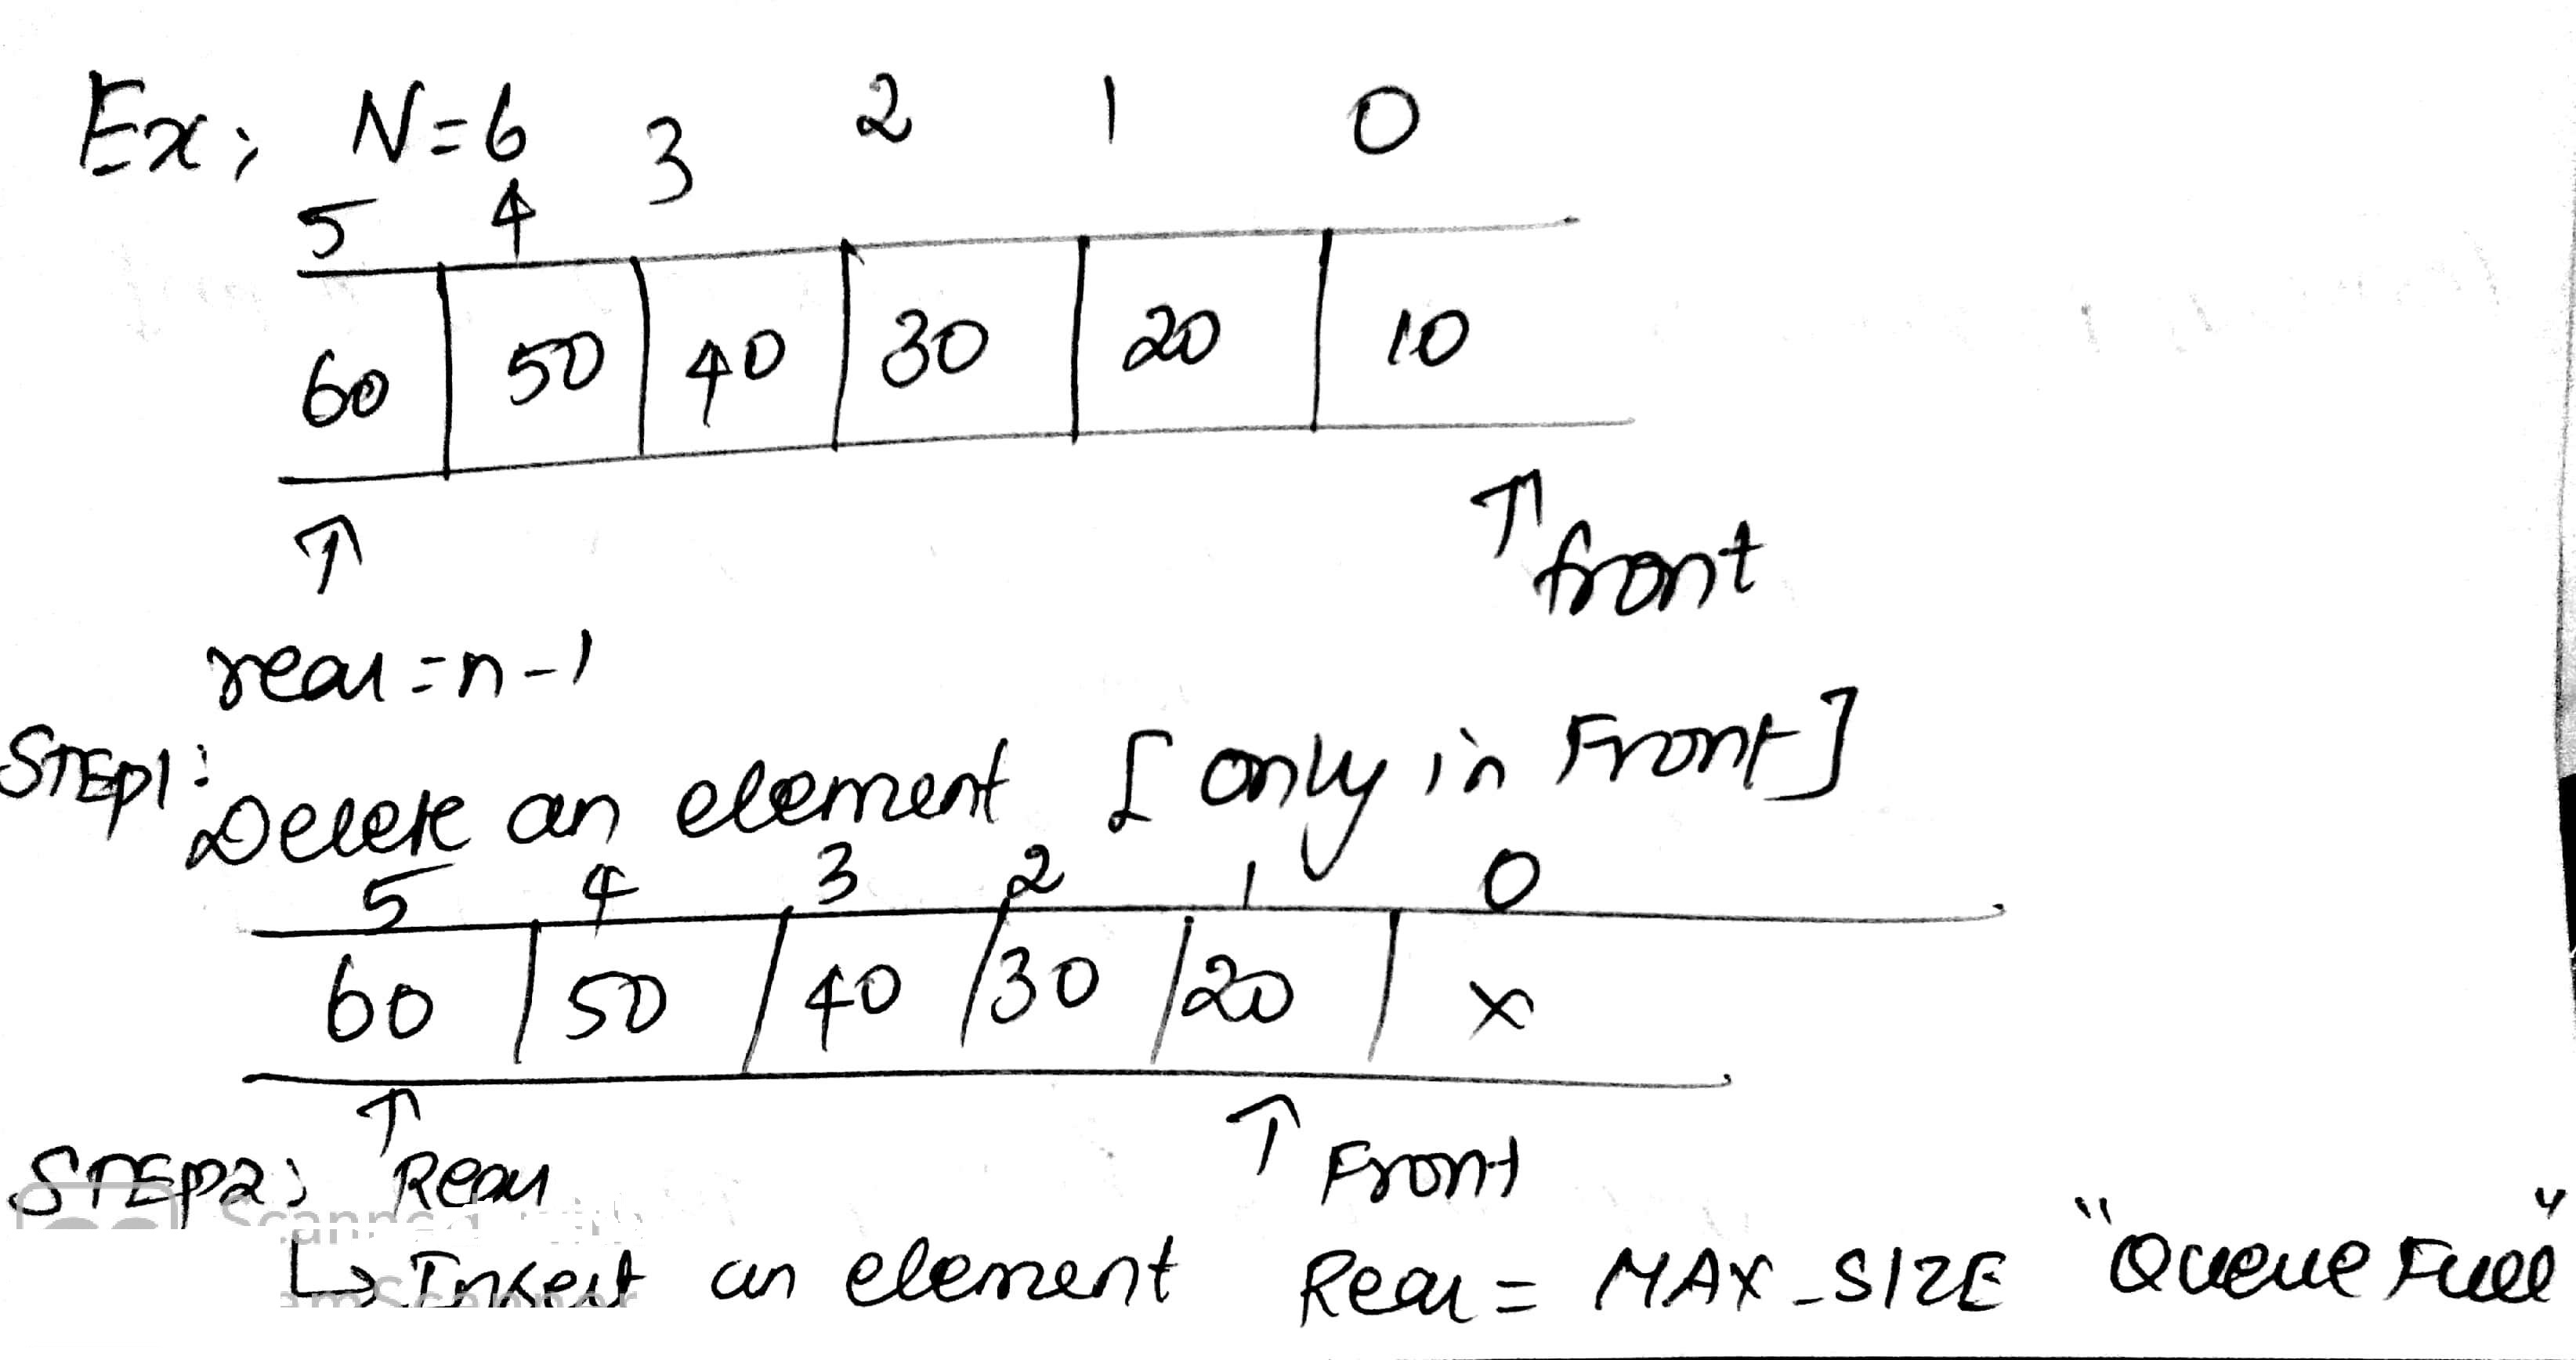 Ex; N=6
5 4 3 2 1 0
60 50 40 30 20 10
front
rear=n-1
STEP1:
Delete an element [only in Front]
5 4 3 2 1 0
60 50 40 30 20 x
STEP2; Rear Front
Insert an element Rear = MAX_SIZE "Queue Full"